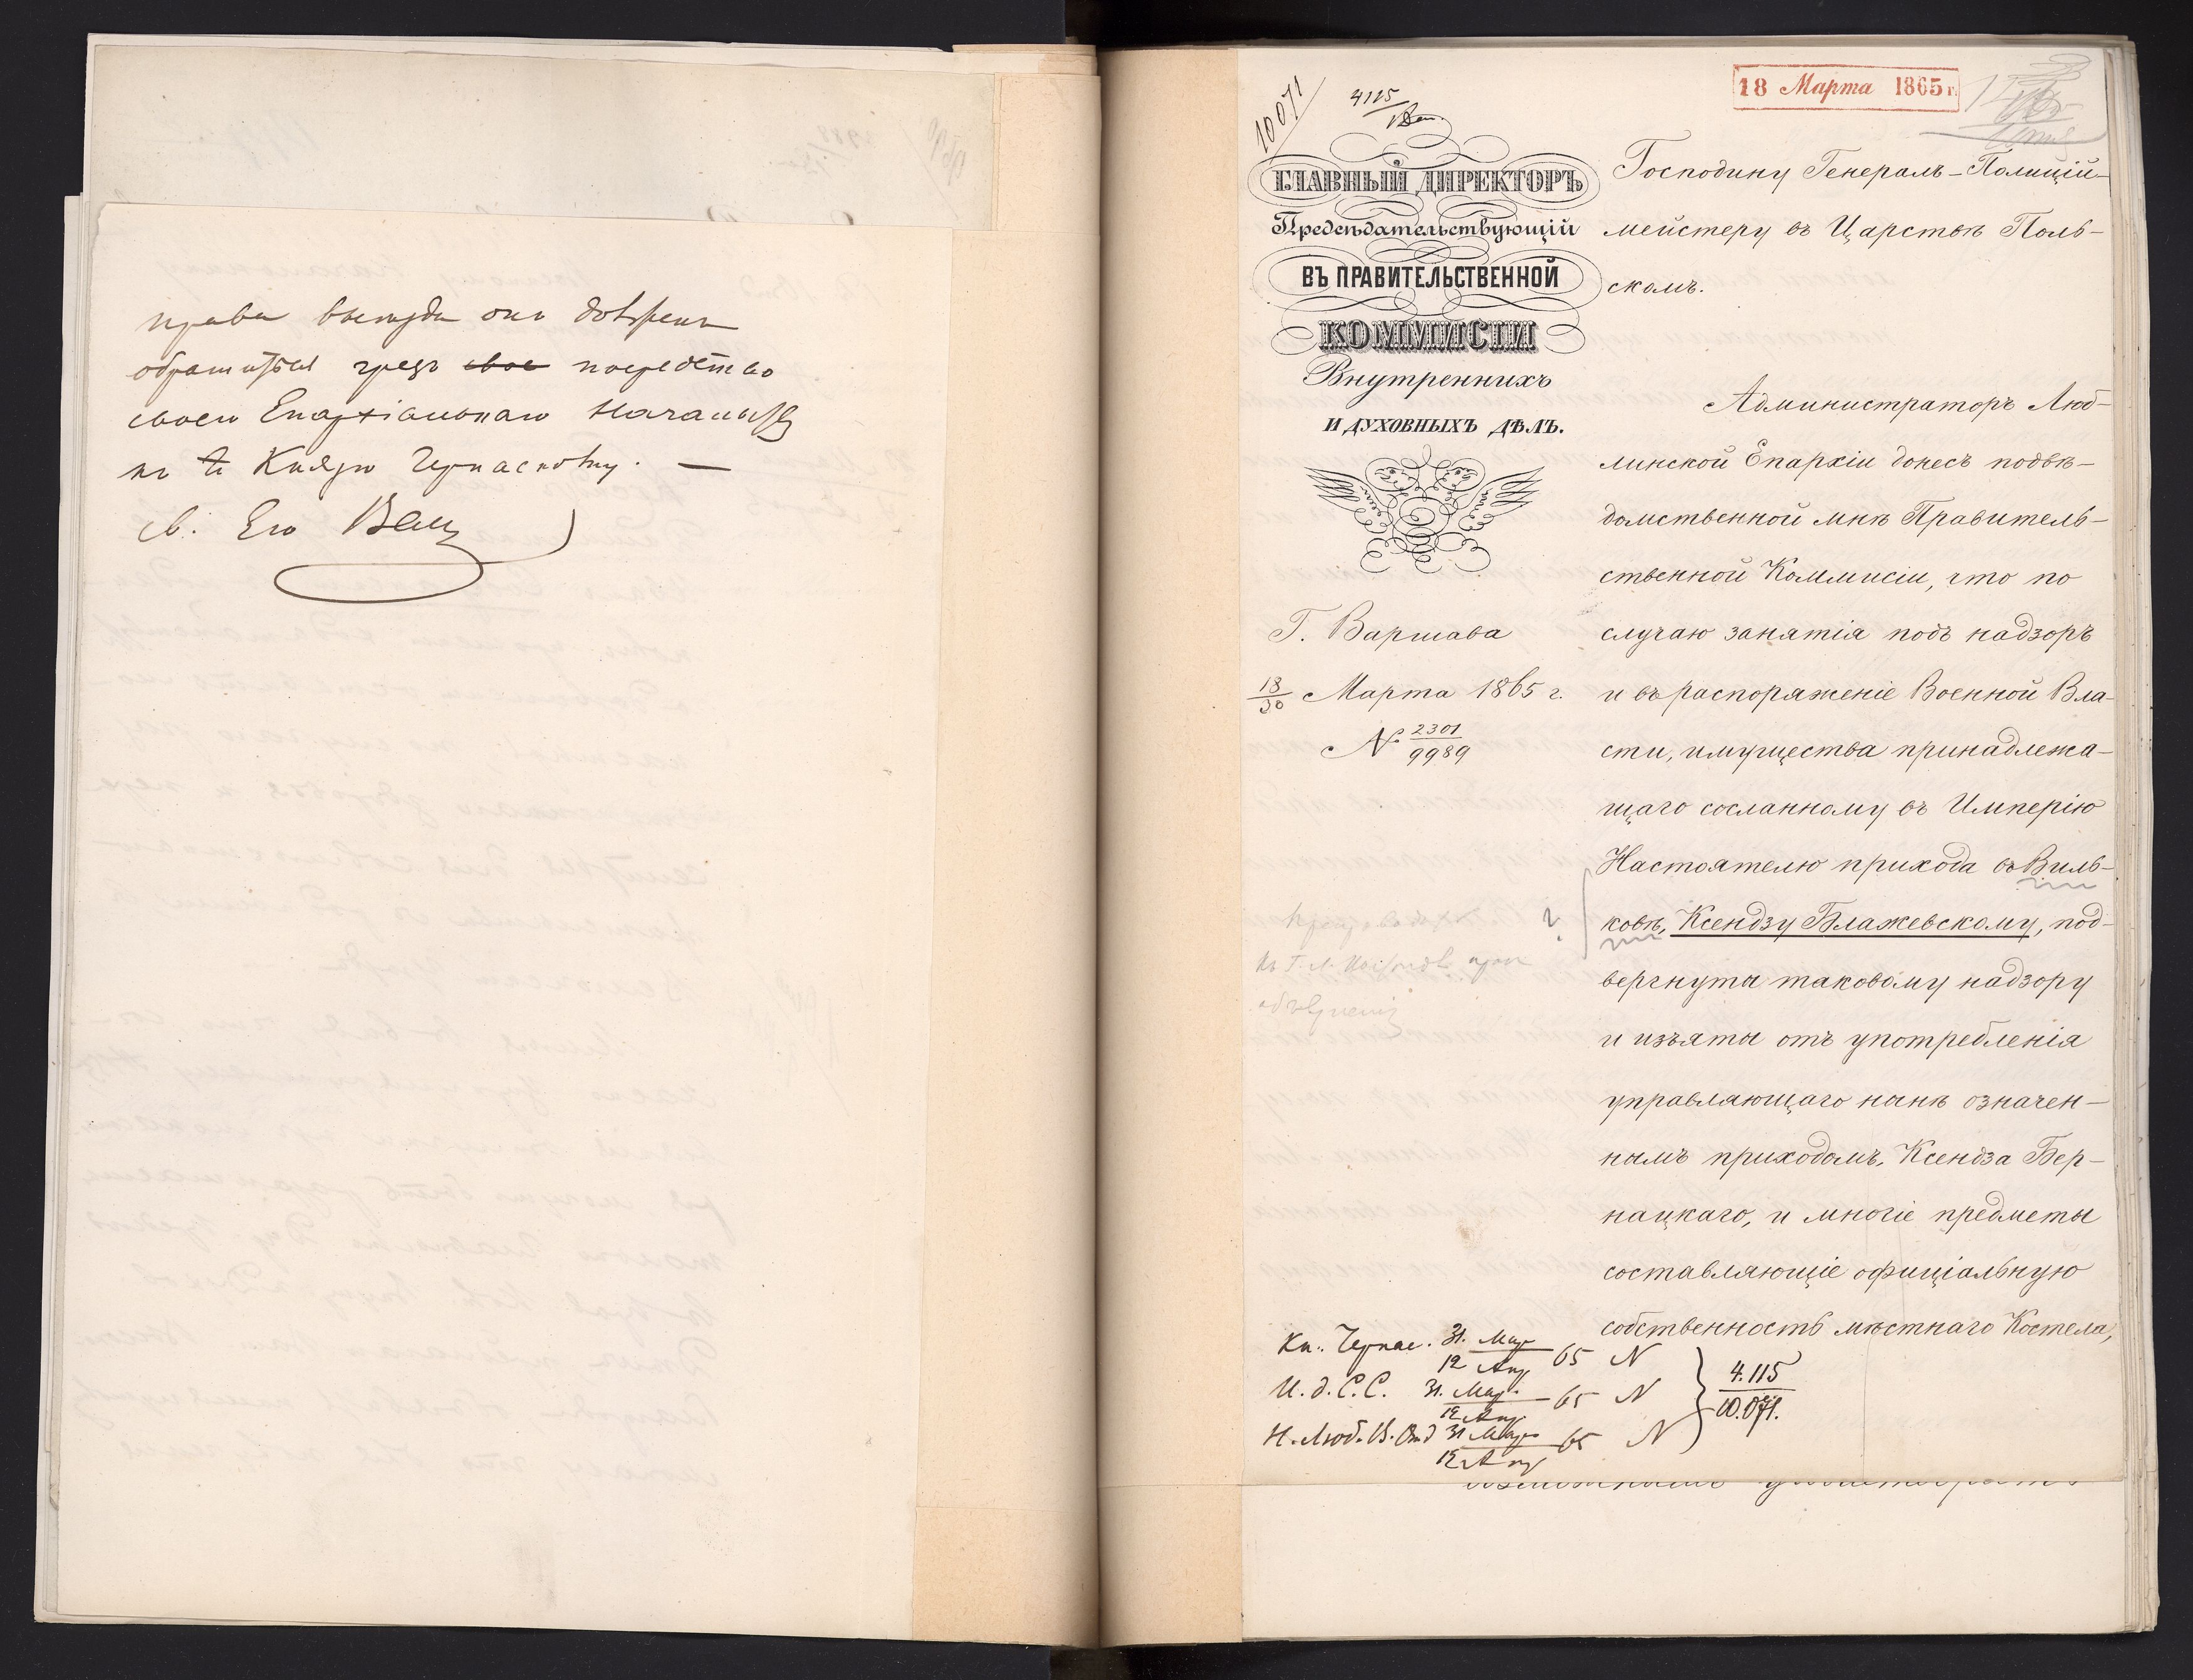 права выезда онъ долженъ
обратиться чрезъ свое посредство
своего Епархіальнаго Начальства
къ Князю Черкасскому. —
св. Его Вел
18 Марта 1865 г.
10071
4115
ГЛАВНЫЙ ДИРЕКТОРЪ
Предсѣдательствующій
ВЪ ПРАВИТЕЛЬСТВЕННОЙ
КОММИСІИ
Внутреннихъ
И ДУХОВНЫХЪ ДѢЛЪ.
Г. Варшава
18/30 Марта 1865 г.
№ 2301/9989
Господину Генералъ-Полицій-
мейстеру въ Царствѣ Поль-
скомъ.
Администраторъ Люб-
линской Епархіи донесъ подвѣ-
домственной мнѣ Правитель-
ственной Коммисіи, что по
случаю занятія подъ надзоръ
и въ распоряженіе Военной Вла-
сти, имущества принадлежа-
щаго сосланному въ Имперію
Настоятелю прихода въ Виль-
ковѣ, Ксендзу Блажевскому, под-
вергнуты таковому надзору
и изъяты отъ употребленія
управляющаго нынѣ означен-
нымъ приходомъ, Ксендза Бер-
нацкаго, и многіе предметы
составляющіе офиціальную
собственность мѣстнаго Костела,
Кн. Черкас. 31. Мар/12 Апр 65 N
И. д. С. С. 31. Мар/12 Апр 65 N
Н. Люб. В. Отд 31 Мар/12 Апр 65 N
4.115
10.071.